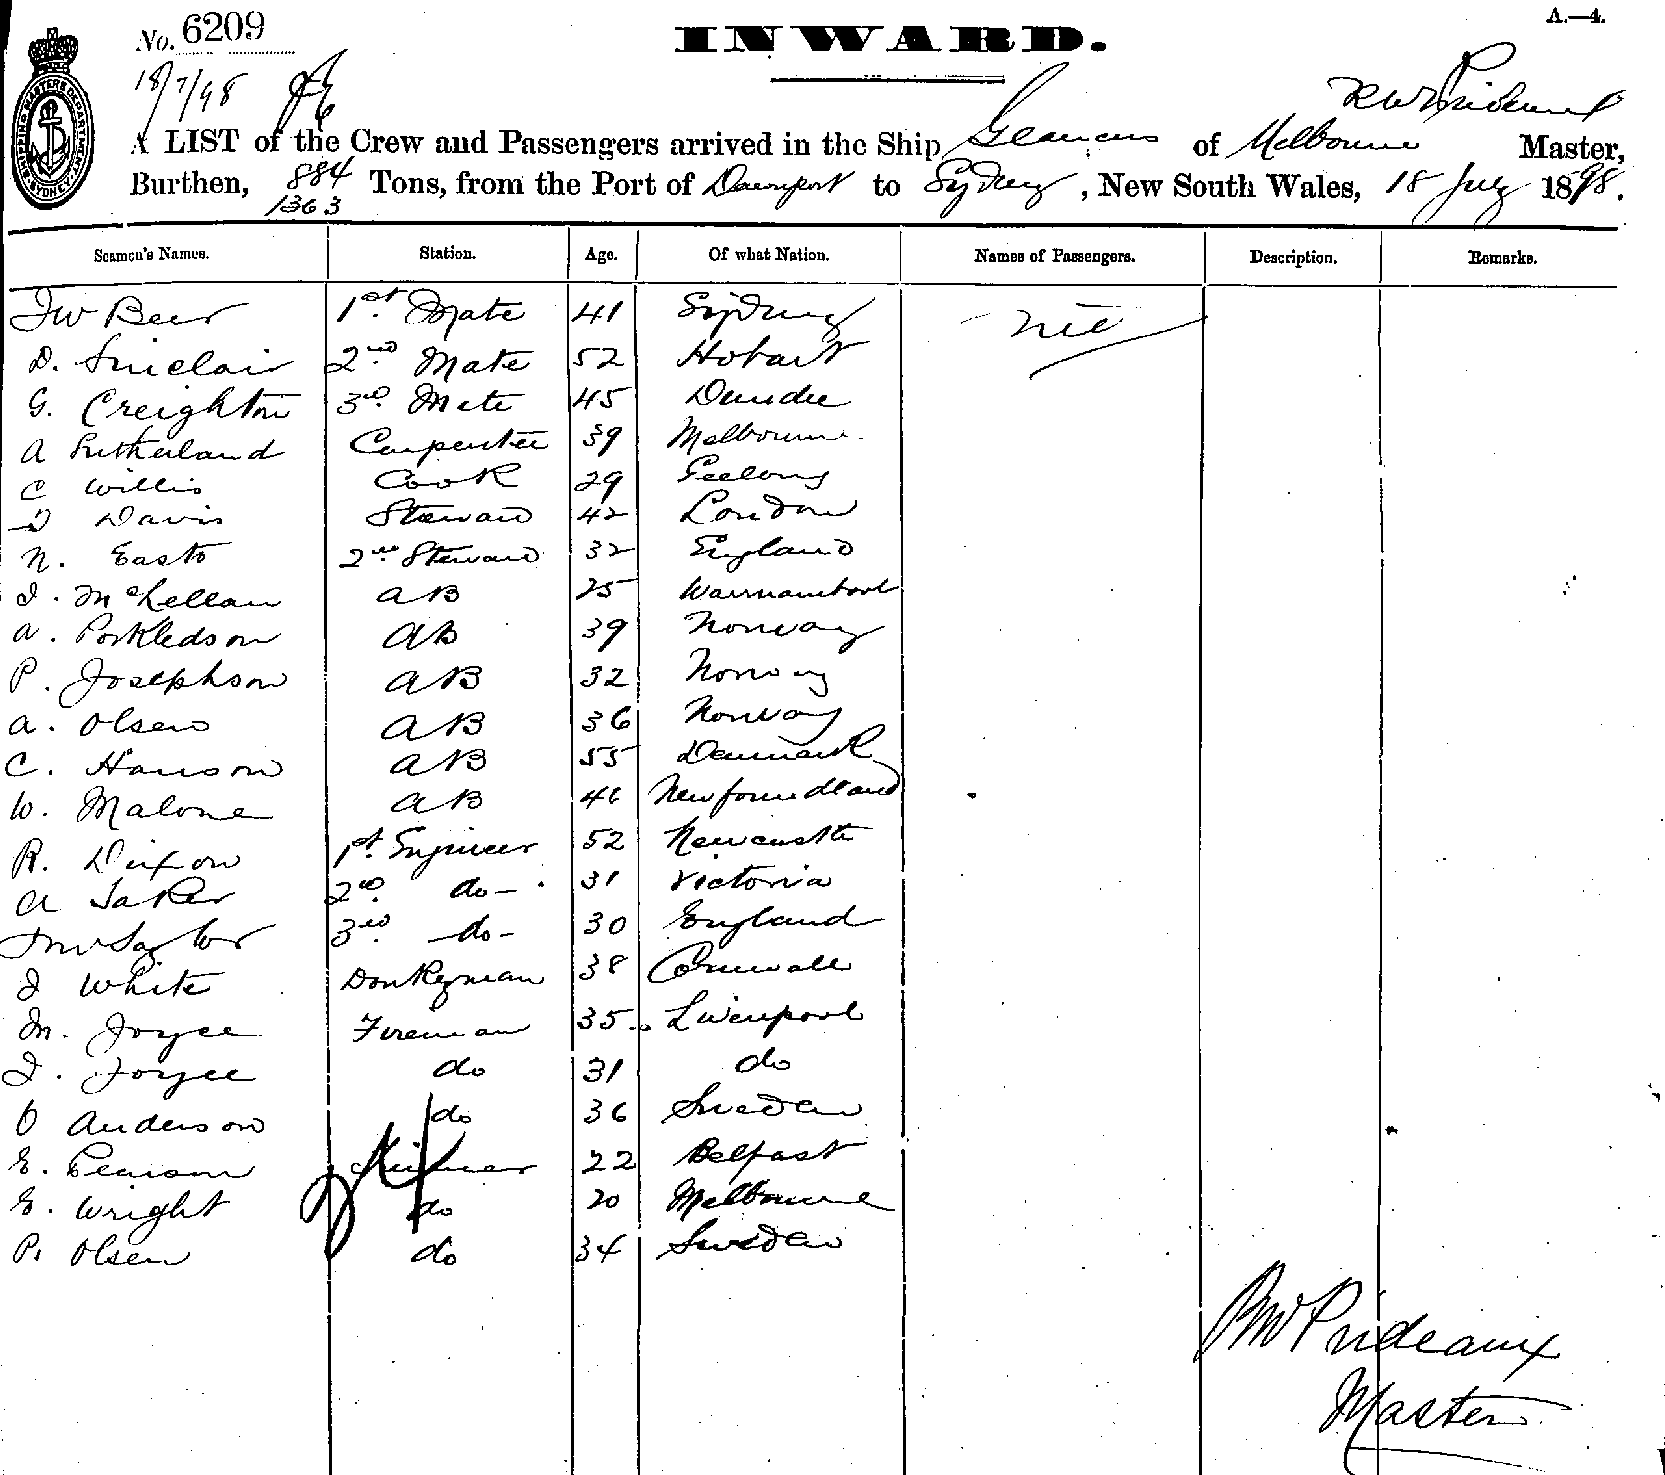 A.—4.
No. 6209
INWARD.
18/7/98
R W Prideaux
A LIST of the Crew and Passengers arrived in the Ship Glaucus of Melbourne Master,
Burthen, 884 Tons, from the Port of Devonport to Sydney, New South Wales, 18 July 1898.
1363
SHIPPING MASTERS DEPARTMENT SYDNEY
Seamen's Names. Station. Age. Of what Nation. Names of Passengers. Description. Remarks.
J W Beer 1st Mate 41 Sydney nil
D. Sinclair 2nd Mate 52 Hobart
G. Creighton 3rd Mate 45 Dundee
A Sutherland Carpenter 39 Melbourne
C Willis Cook 29 Geelong
D Davis Steward 42 London
N. Easto 2nd Steward 32 England
J. McLellan AB 25 Warrnambool
A. Porkledson AB 39 Norway
P. Josephson AB 32 Norway
A. Olsen AB 36 Norway
C. Hanson AB 55 Denmark
W. Malone AB 46 Newfoundland
R. Dixon 1st Engineer 52 Newcastle
A Baker 2nd do 31 Victoria
Taylor 3rd do 30 England
J White Donkeyman 38 Cornwall
M. Joyce Fireman 35 Liverpool
J. Joyce do 31 do
O Anderson do 36 Sweden
E. Pearson Trimmer 22 Belfast
E. Wright do 20 Melbourne
P. Olsen do 34 Sweden
RW Prideaux
Master